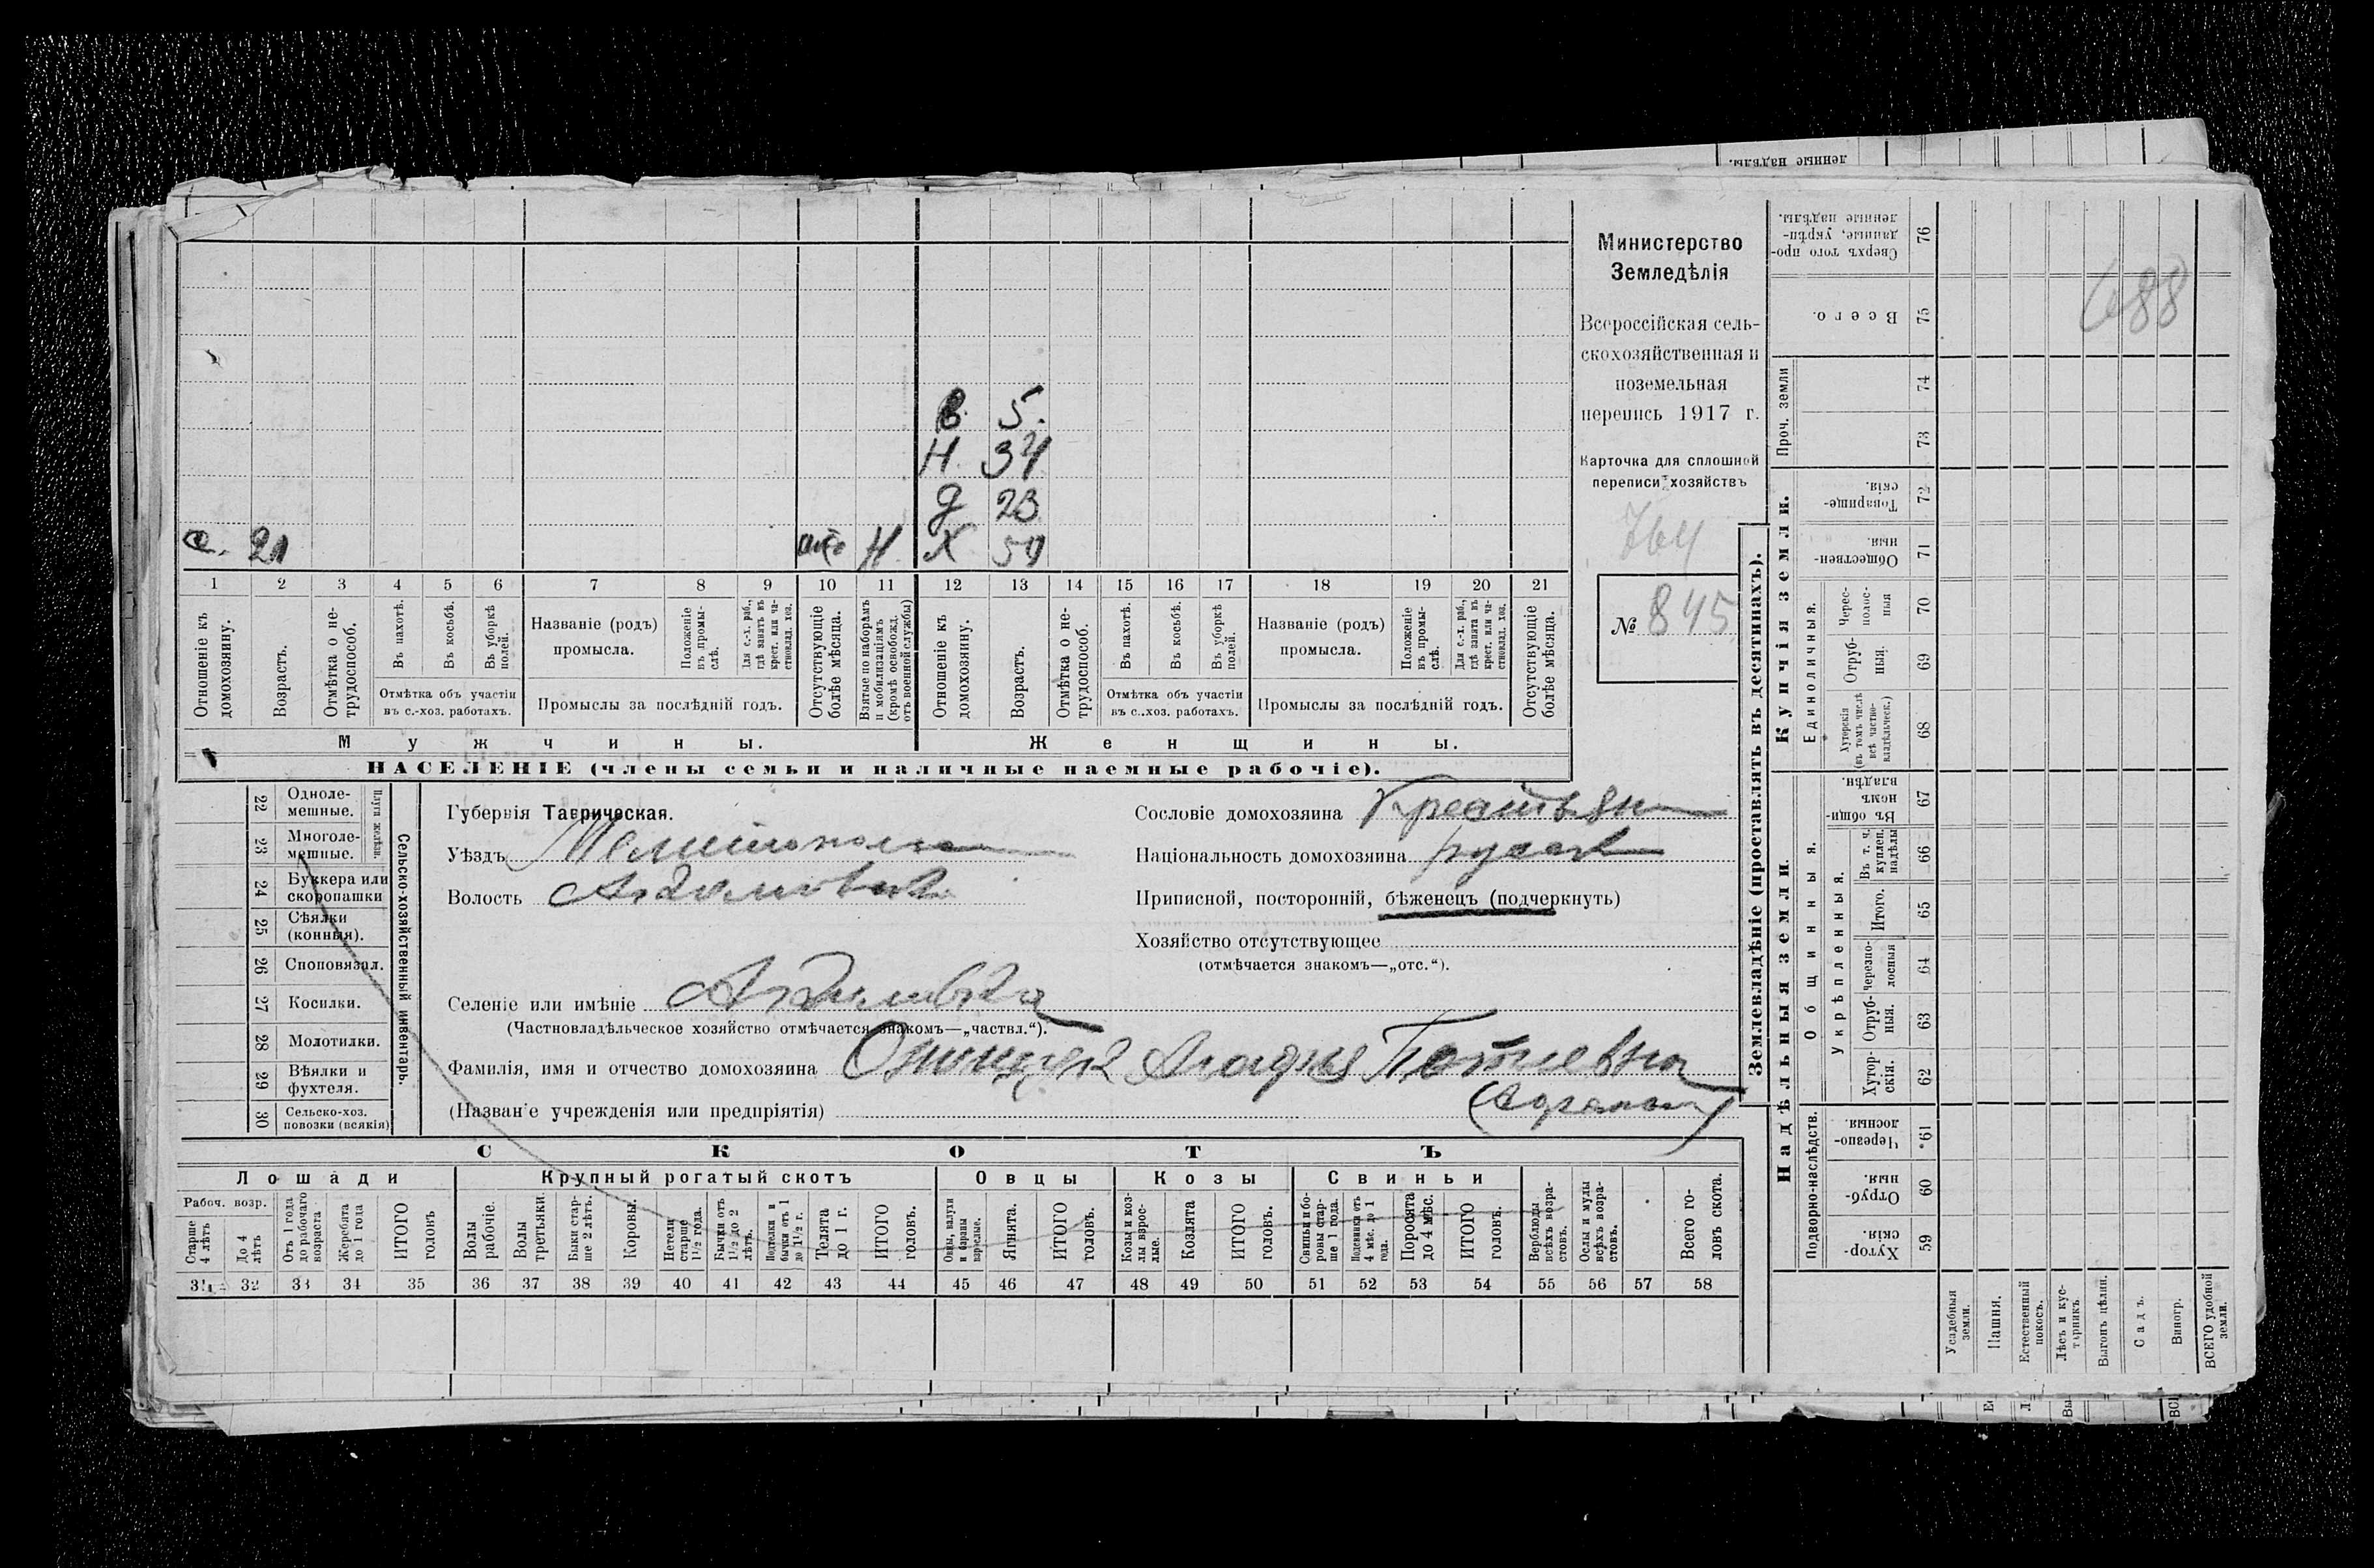 Министерство
Земледѣлія
Всероссійская сель-
скохозяйственная и
поземельная
перепись 1917 г.
Карточка для сплошной
переписи хозяйствъ
764
№ 845
688
в. 5.
н. 34
д 23
с. 21 отс н Х 59
1 2 3 4 5 6 7 8 9 10 11 12 13 14 15 16 17 18 19 20 21
Отношеніе къ домохозяину.
Возрастъ.
Отмѣтка о не-трудоспособ.
Въ пахотѣ.
Въ косьбѣ.
Въ уборкѣ полей.
Отмѣтка объ участіи
въ с.-хоз. работахъ.
Названіе (родъ)
промысла.
Положеніе въ промы-слѣ.
Для с.-х. раб., гдѣ занятъ въ крест. или ча-стновлад. хоз.
Промыслы за послѣдній годъ.
Отсутствующіе болѣе мѣсяца.
Взятые по наборамъ и мобилизаціямъ (кромѣ освобожд. отъ военной службы)
Отношеніе къ домохозяину.
Возрастъ.
Отмѣтка о не-трудоспособ.
Въ пахотѣ.
Въ косьбѣ.
Въ уборкѣ полей.
Отмѣтка объ участіи
въ с.-хоз. работахъ.
Названіе (родъ)
промысла.
Положеніе въ промы-слѣ.
Для с.-х. раб., гдѣ занята въ крест. или ча-стновлад. хоз.
Промыслы за послѣдній годъ.
Отсутствующіе болѣе мѣсяца.
Мужчины. Женщины.
НАСЕЛЕНІЕ (члены семьи и наличные наемные рабочіе).
22 Одноле-мешные.
23 Многоле-мешные.
Плуги желѣзн.
24 Буккера или скоропашки
25 Сѣялки (конныя).
26 Споповязал.
27 Косилки.
28 Молотилки.
29 Вѣялки и фухтеля.
30 Сельско-хоз. повозки (всякія)
Сельско-хозяйственный инвентарь.
Губернія Таврическая.
Уѣздъ Мелитопольск
Волость
Селеніе или имѣніе
(Частновладѣльческое хозяйство отмѣчается знакомъ—„частвл.“).
Фамилія, имя и отчество домохозяина
(Названіе учрежденія или предпріятія)
Сословіе домохозяина Крестьян
Національность домохозяина русск
Приписной, посторонній, бѣженецъ (подчеркнуть)
Хозяйство отсутствующее
(отмѣчается знакомъ—„отс.“).
СКОТЪ
Лошади Крупный рогатый скотъ Овцы Козы Свиньи
Рабоч. возр.
Старше 4 лѣтъ
До 4 лѣтъ
Отъ 1 года до рабочаго возраста
Жеребята до 1 года
ИТОГО головъ
Волы рабочіе.
Волы третьяки.
Быки стар-ше 2 лѣтъ.
Коровы.
Нетели старше 1½ года.
Бычки отъ 1½ до 2 лѣтъ.
Подтелки и бычки отъ 1 до 1½ г.
Телята до 1 г.
ИТОГО головъ.
Овцы, валухи и бараны взрослые.
Ягнята.
ИТОГО головъ.
Козы и коз-лы взрос-лые.
Козлята
ИТОГО головъ.
Свиньи и бо-ровы стар-ше 1 года.
Подсвинки отъ 4 мѣс. до 1 года.
Поросята до 4 мѣс.
ИТОГО головъ.
Верблюды всѣхъ возра-стовъ.
Ослы и мулы всѣхъ возра-стовъ.
Всего го-ловъ скота.
31 32 33 34 35 36 37 38 39 40 41 42 43 44 45 46 47 48 49 50 51 52 53 54 55 56 57 58
Землевладѣніе (проставлять въ десятинахъ).
Надѣльныя земли. Купчія земли. Проч. земли
Подворно-наслѣдств.
Общинныя.
Укрѣпленныя.
Единоличныя.
Сверхъ того про-данные, укрѣп-ленные надѣлы. 76
Всего. 75
74
73
Товарище-скія. 72
Обществен-ныя. 71
Черес-полос-ныя 70
Отруб-ныя. 69
Хуторскія (въ томъ числѣ всѣ частно-владѣльческ.) 68
Въ общин-номъ владѣн. 67
Въ т. ч. куплен. надѣлы 66
Итого. 65
Черезпо-лосныя 64
Отруб-ныя. 63
Хутор-скія. 62
Черезпо-лосныя. 61
Отруб-ныя. 60
Хутор-скія. 59
Усадебныя земли.
Пашня.
Естественный покосъ.
Лѣсъ и кус-тарникъ.
Выгонъ цѣлин.
Садъ.
Виногр.
ВСЕГО удобной земли.
ленные надѣлы.